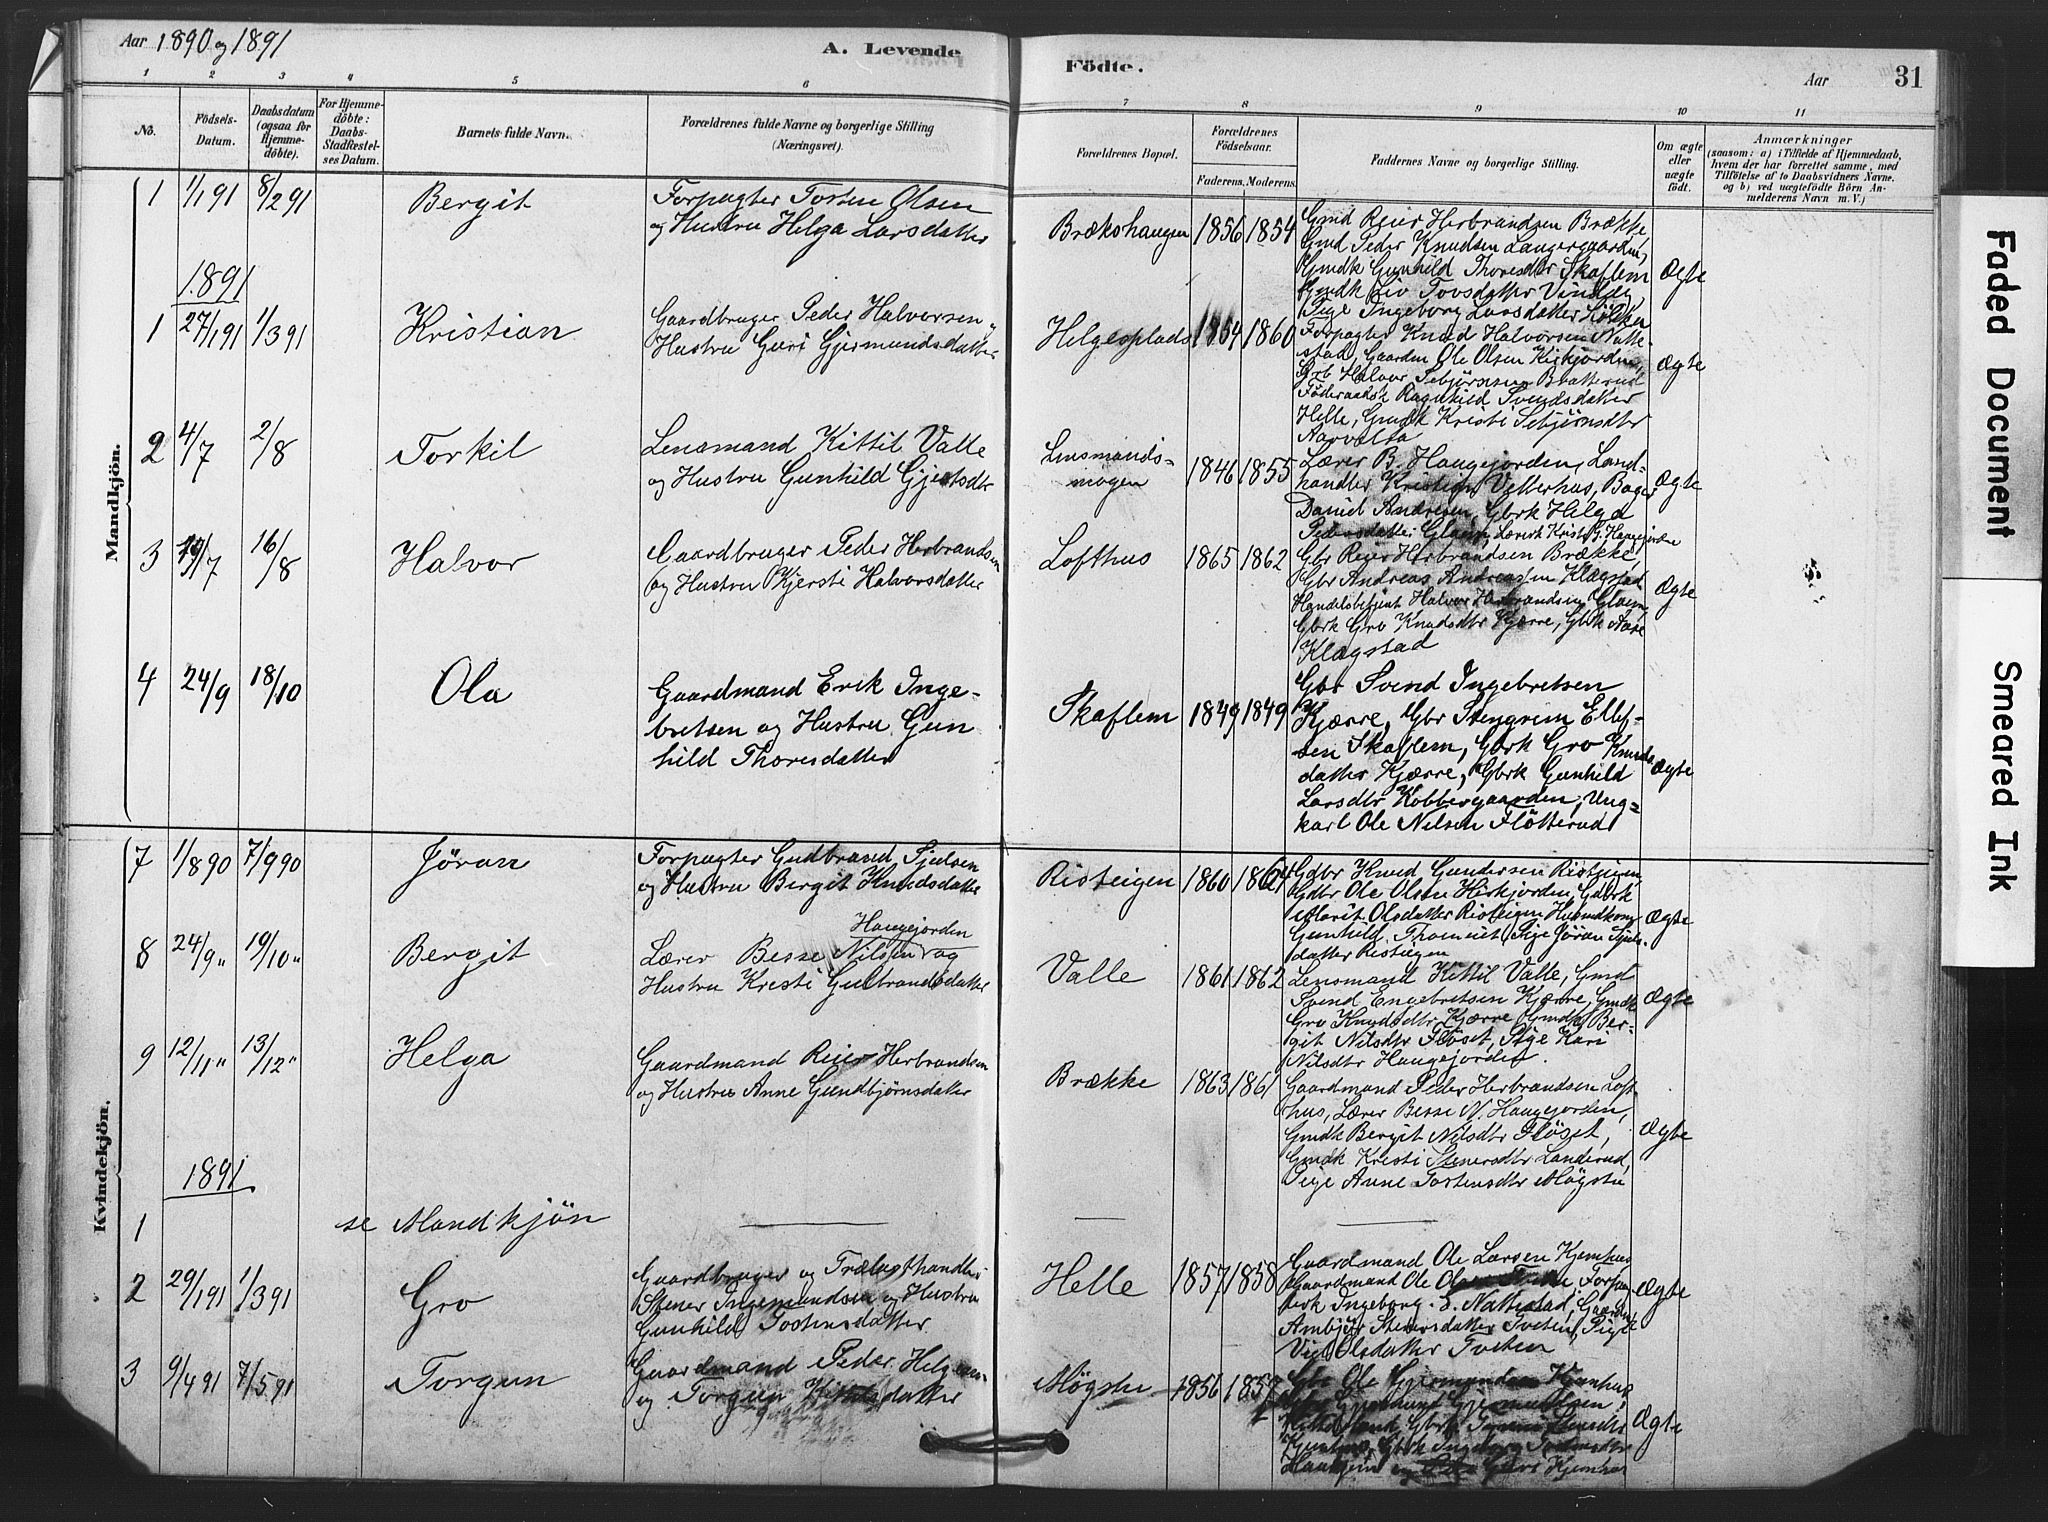 Aar 1890 og 1891
A. Levende
Födte.
Aar
31
1
2
3
4
5
6
7
8
9
10
11
No.
Födsels-
Datum.
Daabsdatum
(ogsaa for
Hjemme-
döbte).
For Hjemme-
döbte:
Daabs-
Stadfæstel-
ses Datum.
Barnets fulde Navn.
Forældrenes fulde Navne og borgerlige Stilling
(Næringsvei).
Forældrenes Bopæl.
Forældrenes
Födselsaar.
Faderens. Moderens.
Faddernes Navne og borgerlige Stilling.
Om ægte
eller
uægte
födt.
Anmærkninger
(saasom: a) i Tilfælde af Hjemmedaab,
hvem der har forrettet samme, med
Tilföielse af to Daabsvidners Navne.
og b) ved uægtefödte Börn An-
melderens Navn m. V.)
Mandkjön.
1 1/1 91 8/2 91 Bergit
Forpagter Tosten Olsen
og Hustru Helga Larsdatter
Brækshaugen 1856 1854
Gmd Reier Herbrandsen Brække,
Gmd Peder Knudsen Langergaarden,
Gmdk Gunhild Thoresdtr Skaflem
Gmdk Liv Tovsdatter Vindeg,
Pige Ingeborg Larsdatter
Ægte
1891
1 27/1 91 1/3 91 Kristian
Gaardbruger Peder Halvorsen
Hustru Guri Gjermundsdatter
Helgesplads 1854 1860
Forpagter Knud Halvorsen Natte-
stad, Gaarden Ole Olsen Kirkjorden,
Grb Halvor Sebjörnsen Bratterud
Föderaadsk Ragnhild Svendsdatter
Helle, Gmdk Kristi Sebjörnsdtr
Ægte
2 4/7 2/8 Torkil
Lensmand Kittil Valle
og Hustru Gunhild Gjestsdtr
Lensmands-
mogen
1846 1855
Lærer B. Haugejorden, Land-
handler Kristian Vetterhus, Bager
Daniel Andresen, Gbrk Helga
Pedersdatter Glaim, Lærerk Kristi G. Haugejorden
Ægte
3 19/7 16/8 Halvor
Gaardbruger Peder Herbrandsen
og Hustru Kjersti Halvorsdatter
Lofthus 1865 1862
Gbr Reier Herbrandsen Brække,
Gbr Andreas Andreassen Klægstad
Handelsbetjent Halvor Herbrandsen Glaim,
Gbrk Gro Knudsdtr Kjærre, Gbrk Aase
Klægstad
Ægte
4 24/9 18/10 Ola
Gaardmand Erik Inge-
bretsen og Hustru Gun
hild Thoresdatter
Skaflem 1849 1849
Gbr Svend Ingebretsen
Kjærre, Gbr Stengrim Ellef-
sen Skaflem, Gbrk Gro Knuds
datter Kjærre, Gbrk Gunhild
Larsdtr Kobbergaarden, Ung-
karl Ole Nilsen Flötterud
Ægte
Kvindekjön.
7 1/8 90 7/9 90 Jöran
Forpagter Gudbrand Sjulsen
og Hustru Bergit Knudsdatter
Risteigen 1860 1864
Gdbr Knud Gundersen Risteigen,
Gdbr Ole Olsen Kirkjorden, Gdbrk
Marit Olsdatter Risteigen Husmdkone
Gunhild Thomlet, Pige Jöran Sjuls-
datter Risteigen
Ægte
8 24/9 " 19/10 " Bergit
Haugejorden
Lærer Besse Nilsen og
Hustru Kristi Gulbrandsdatter
Valle 1861 1862
Lensmand Kittil Valle, Gmd
Svend Engebretsen Kjærre, Gmdk
Gro Knudsdtr Kjærre Gmdk Ber-
git Nilsdtr Flöset, Pige Kari
Nilsdtr Haugejorden.
Ægte
9 12/11 " 13/12 " Helga
Gaardmand Reier Herbrandsen
og Hustru Anne Gundbjörnsdatter
Brække 1863 1861
Gaardmand Peder Herbrandsen Loft-
hus, Lærer Besse N. Haugejorden,
Gmdk Bergit Nilsdtr Flöset,
Gmdk Kristi Stenersdtr Landerud,
Pige Anne Tostensdtr Mögste
Ægte
1891
1 se Mandkjön
2 29/1 91 1/3 91 Gro
Gaardbruger og Trælasthandler
Stener Ingemundsen og Hustru
Gunhild Tostensdatter
Helle 1857 1858
Gaardmand Ole Larsen Kjemhus
Gaardmand Ole Olsen Forpag-
terk Ingeborg Nattestad, Gaardm
Ambjör Stenersdatter Tveten, Pige
Olsdatter Tveten
Ægte
3 9/4 91 7/5 91 Torgun
Gaardmand Peder Helgesen
og Torgun Kittilsdatter
Mögste 1856 1857
Gbr Ole Gjermundsen Kjemhus
Ægte
Faded Document
Smeared Ink